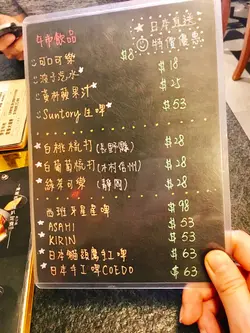 午市飲品
日本直送
特價優惠
可口可樂 $8 $18
波子汽水 $18
青森蘋果汁 $25
Suntory生啤 $53
白桃梳打(長野縣) $28
白葡萄梳打(木村信州) $28
綠茶可樂(靜岡) $28
西班牙星星啤 $98
ASAHI $53
KIRIN $53
日本貓頭鷹手工啤 $63
日本手工啤COEDO $63